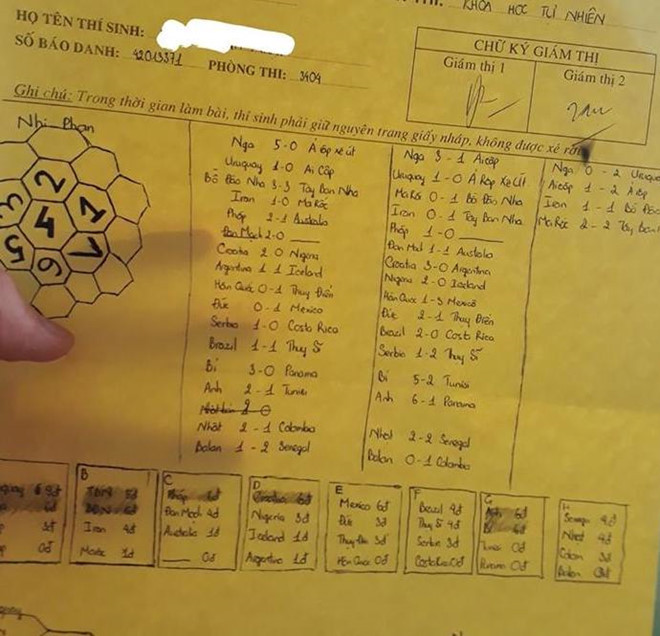 KHOA HỌC TỰ NHIÊN
HỌ TÊN THÍ SINH:
SỐ BÁO DANH: 42013371 PHÒNG THI: 3404
CHỮ KÝ GIÁM THỊ
Giám thị 1 Giám thị 2
Ghi chú: Trong thời gian làm bài, thí sinh phải giữ nguyên trang giấy nháp, không được xé rời
Nhị Phan
2
3 1
4
5 1
6
Nga 5-0 Ả ập xê út
Uruguay 1-0 Ai Cập
Bồ Đào Nha 3-3 Tây Ban Nha
Iran 1-0 Ma Rốc
Pháp 2-1 Australia
Đan Mạch 2-0
Croatia 2 0 Nigeria
Argentina 1 1 Iceland
Hàn Quốc 0-1 Thụy Điển
Đức 0-1 Mexico
Serbia 1-0 Costa Rica
Brazil 1-1 Thụy Sĩ
Bỉ 3-0 Panama
Anh 2-1 Tunisi
Nhật 2-1 Colombia
Balan 1-2 Senegal
Nga 3-1 Ai cập
Uruguay 1-0 Ả Rập Xê Út
Ma Rốc 0-1 Bồ Đào Nha
Iran 0-1 Tây Ban Nha
Pháp 1-0
Đan Mạch 1-1 Australia
Croatia 3-0 Argentina
Nigeria 2-0 Iceland
Hàn Quốc 1-3 Mexico
Đức 2-1 Thụy Điển
Brazil 2-0 Cost Rica
Serbia 1-2 Thụy Sĩ
Bỉ 5-2 Tunisi
Anh 6-1 Panama
Nhật 2-2 Senegal
Balan 0-1 Colombia
Nga 0-2 Urugua
Ai cập 1-2 Ả
Iran 1-1 Bồ Đào
Ma Rốc 2-2 Tây Ban
9đ
6đ
3đ
0đ
B
TBN 5đ
BĐN 5đ
Iran 4đ
Maroc 1đ
C
Pháp
Đan Mạch 4đ
Australia 1đ
0đ
D
Croatia 6đ
Nigeria 3đ
Iceland 1đ
Argentina 1đ
E
Mexico 6đ
Đức 3đ
Thụy Điển 3đ
Hàn Quốc 0đ
F
Brazil 4đ
Thụy Sĩ 4đ
Serbia 3đ
CostaRica 0đ
G
Anh 6đ
Bỉ 6đ
Tunisi 0đ
Panama 0đ
H
Senegal 4đ
Nhật 4đ
Colom 3đ
Balan 0đ